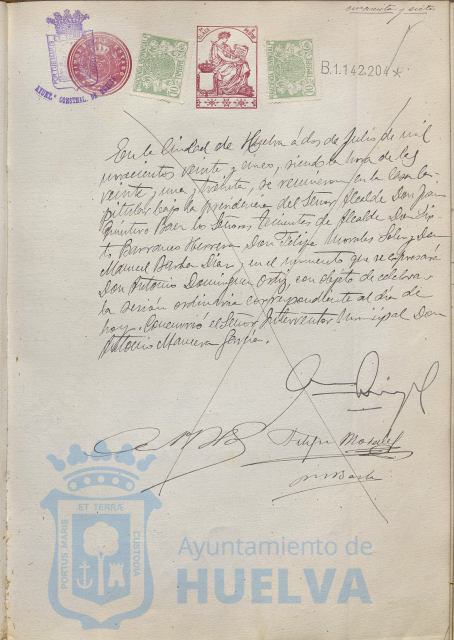 cincuenta y siete
B.1.142.204 *
AYUNT.º CONSTNAL. DE HUELVA
En la Ciudad de Huelva á dos de Julio de mil
novecientos veinte y cinco, siendo la hora de las
veinte y una y treinta, se reunieron en la Casa Ca-
pitular bajo la presidencia del Señor Alcalde Don Juan
Quintero Baez los Señores Tenientes de Alcalde Don Six-
to Barranco Herrera, Don Felipe Morales Soler y Don
Manuel Barba Díaz, en el momento que se expresará
Don Antonio Dominguez Ortiz, con objeto de celebrar
la sesión ordinaria correspondiente al día de
hoy. Concurrió el Señor Interventor Municipal Don
Antonio Mancera
Felipe Morales
M Barba
ET TERRÆ
PORTUS MARIS
CUSTODIA
Ayuntamiento de
HUELVA